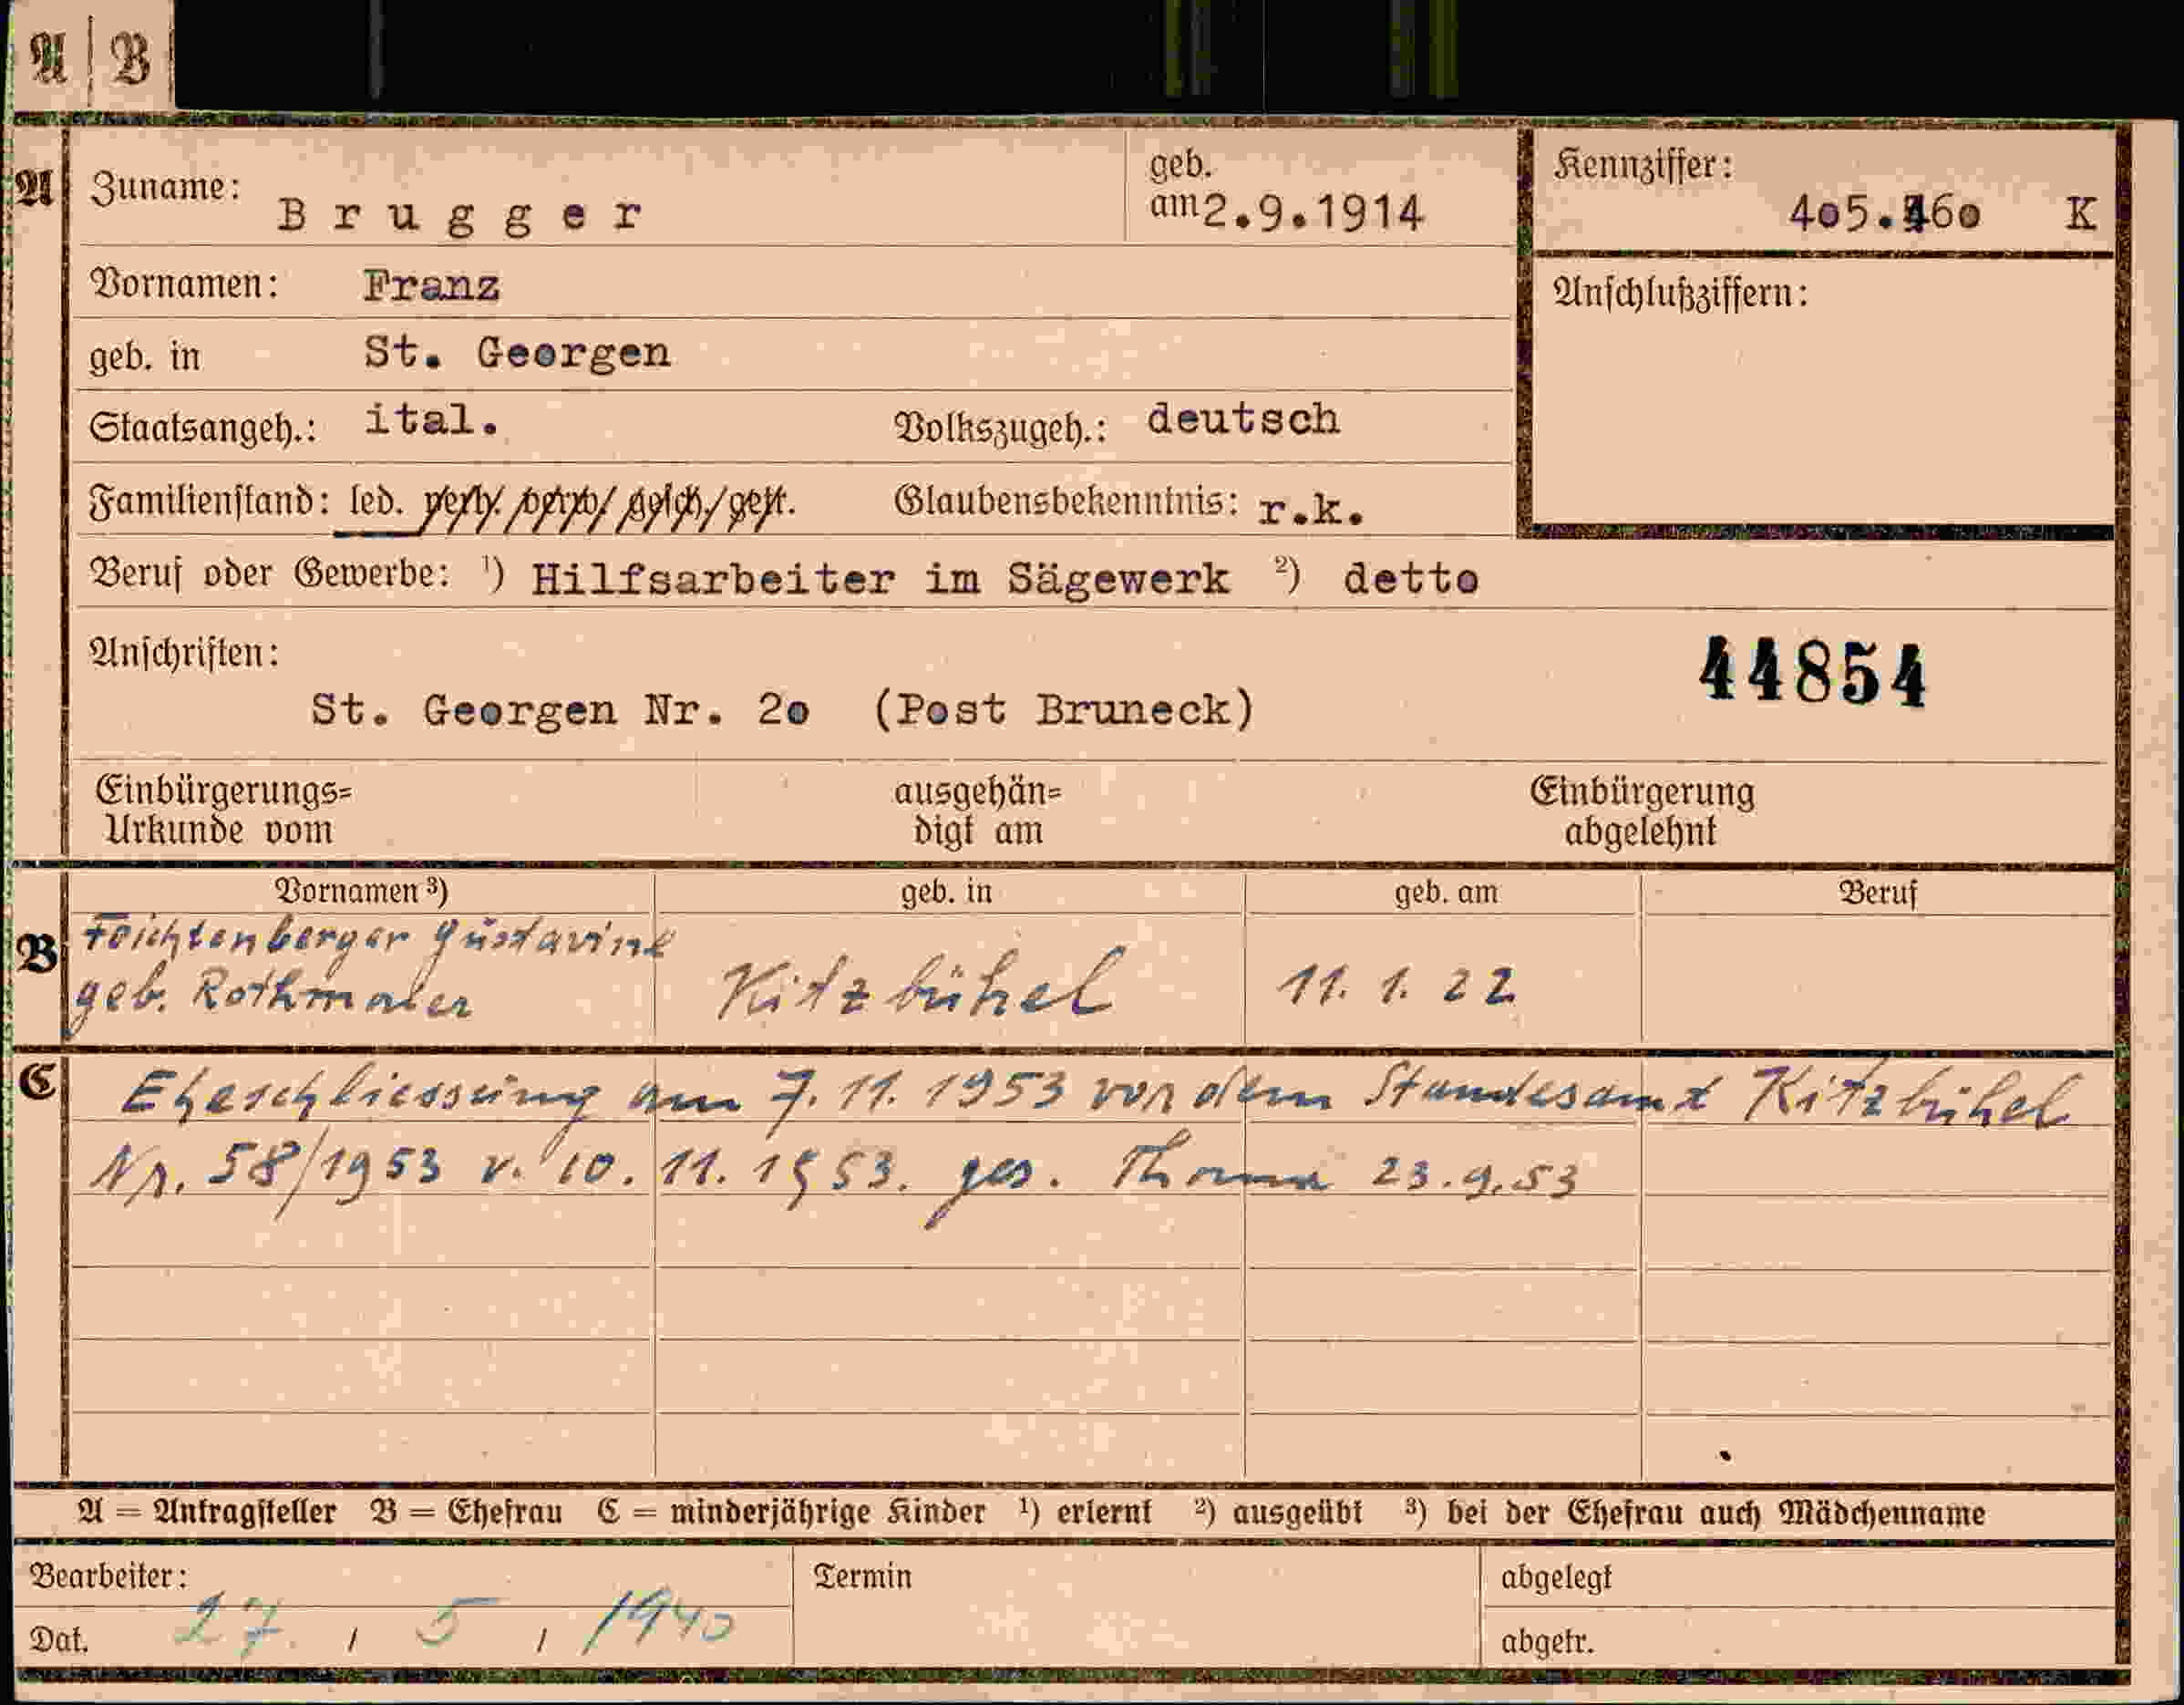 A | B
A Zuname: Brugger geb. am 2.9.1914 Kennziffer: 4o5.160 K
Vornamen: Franz Anschlußziffern:
geb. in St. Georgen
Staatsangeh.: ital. Volkszugeh.: deutsch
Familienstand: led. verh./verw./gesch./getr. Glaubensbekenntnis: r.k.
Beruf oder Gewerbe: ¹) Hilfsarbeiter im Sägewerk ²) detto
Anschriften: 44854
St. Georgen Nr. 2o (Post Bruneck)
Einbürgerungs= ausgehän= Einbürgerung
Urkunde vom digt am abgelehnt
Vornamen ³) geb. in geb. am Beruf
B Feichtenberger Gustavine
geb. Rothmaler Kitzbühel 11. 1. 22
C Eheschliessung am 7. 11. 1953 vor dem Standesamt Kitzbühel
Nr. 58/1953 v. 10. 11. 1953. ges. Thoma 23.9.53
A = Antragsteller B = Ehefrau C = minderjährige Kinder ¹) erlernt ²) ausgeübt ³) bei der Ehefrau auch Mädchenname
Bearbeiter: Termin abgelegt
Dat. 27. / 5 / 1940 abgetr.